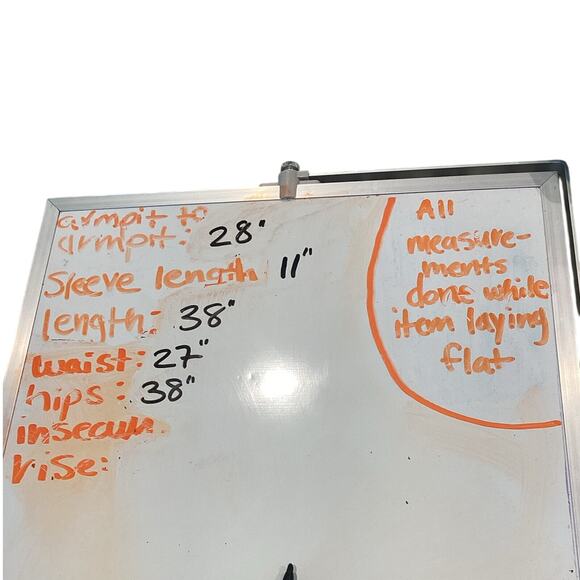 armpit to
armpit: 28"
Sleeve length 11"
length: 38"
waist: 27"
hips: 38"
insecum
rise:
All
measure-
ments
done while
item laying
flat